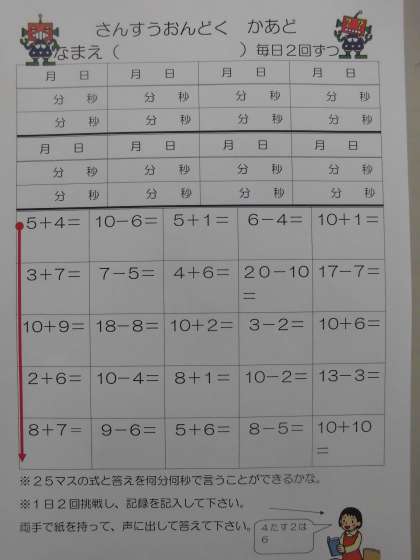 さんすうおんどく かあど
なまえ（ ）毎日２回ずつ
月 日 月 日 月 日 月 日
分 秒 分 秒 分 秒 分 秒
分 秒 分 秒 分 秒 分 秒
月 日 月 日 月 日 月 日
分 秒 分 秒 分 秒 分 秒
分 秒 分 秒 分 秒 分 秒
5＋4＝ 10－6＝ 5＋1＝ 6－4＝ 10＋1＝
3＋7＝ 7－5＝ 4＋6＝ 20－10＝ 17－7＝
10＋9＝ 18－8＝ 10＋2＝ 3－2＝ 10＋6＝
2＋6＝ 10－4＝ 8＋1＝ 10－2＝ 13－3＝
8＋7＝ 9－6＝ 5＋6＝ 8－5＝ 10＋10＝
※２５マスの式と答えを何分何秒で言うことができるかな。
※１日２回挑戦し、記録を記入して下さい。
両手で紙を持って、声に出して答えて下さい。
４たす２は
６